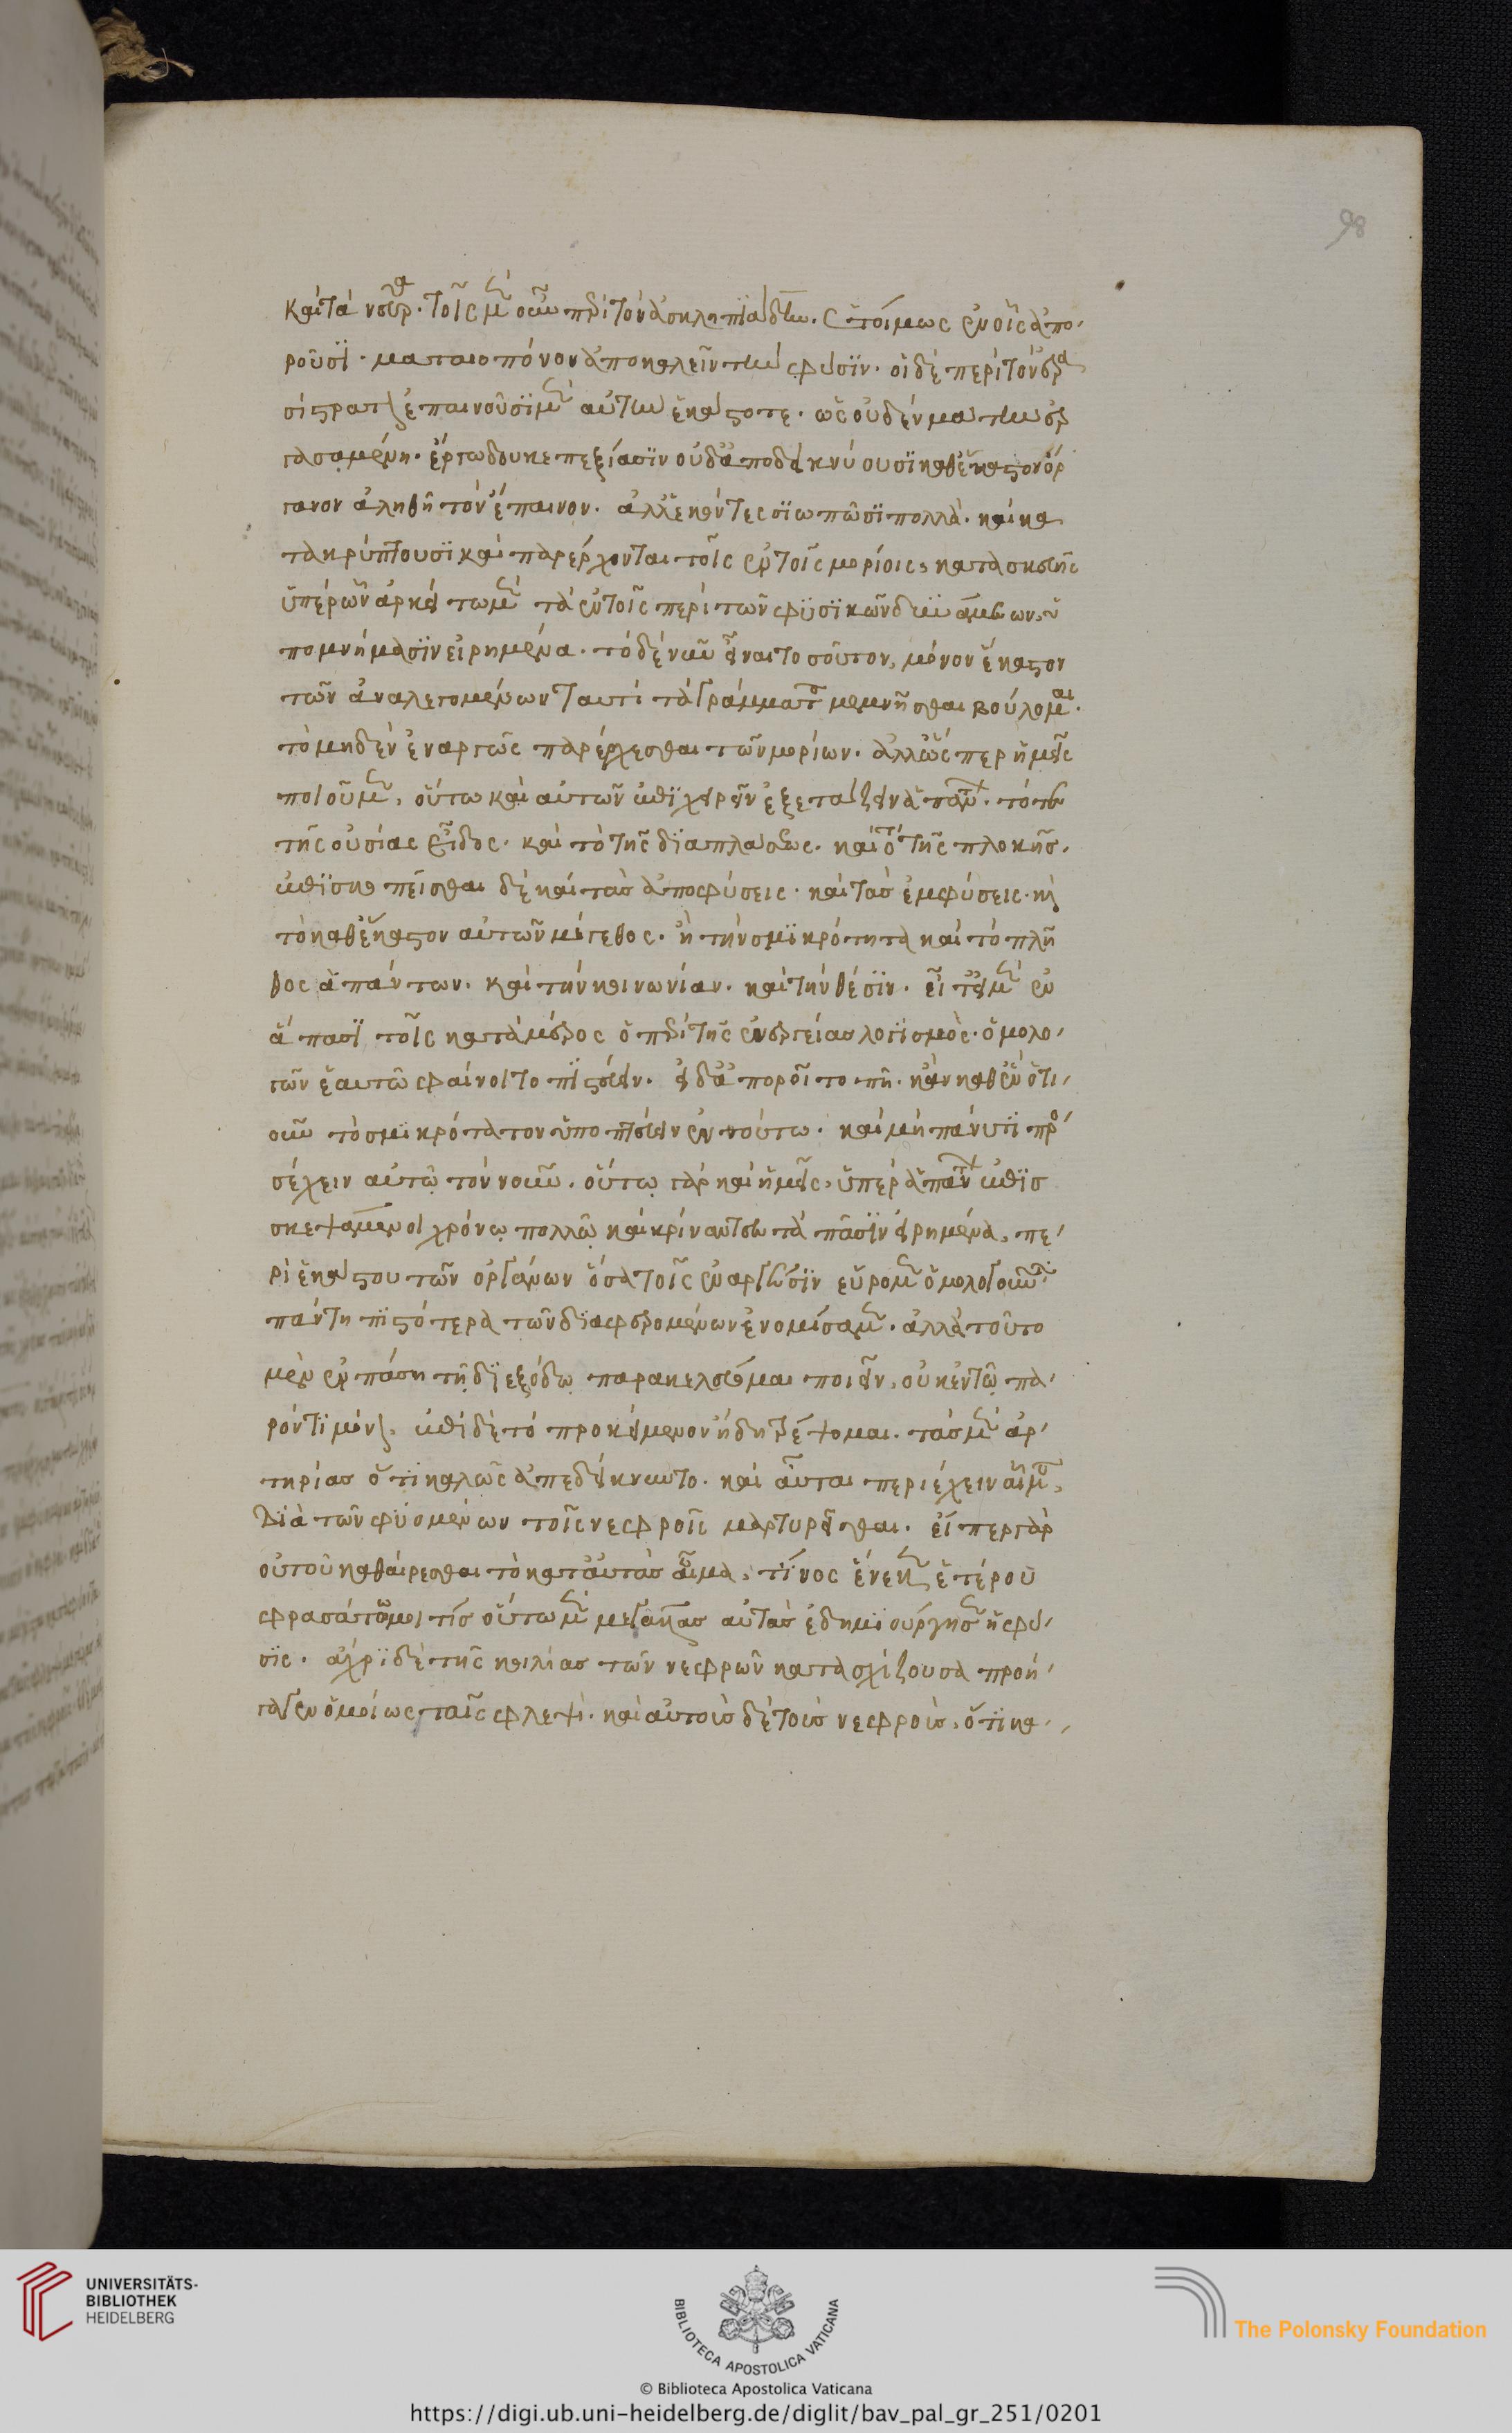 98
καὶ τὰ νεῦρα. τοῖς μὲν οὖν περὶ τὸν ἀσκληπϊάδην. ἑτοίμως ἐν οἷς ἀπο
ροῦσϊ. ματαιοπόνον ἀποκαλεῖν τὴν φύσϊν. οἱ δὲ περὶ τὸν ἐρα
σίστρατον ἐπαινοῦσϊ μὲν αὐτὴν ἑκάστοτε. ὡς οὐδὲν μάτην ἐρ
γασαμένη. ἔργω δ οὐκ ἐπεξίασϊν οὐδ ἀποδείκνύουσϊ καθ ἕκαστον ὄρ
γανον ἀληθῆ τὸν ἔπαινον. ἀλλ ἑκόντες σϊωπῶσϊ πολλὰ. καὶ κα
τακρύπτουσϊ καὶ παρέρχονται τοῖς ἐν τοῖς μορίοις, κατασκευῆς
ὑπὲρ ὧν ἀρκεῖ τω μὲν τὰ ἐν τοῖς περὶ τῶν φϋσϊκῶν δυνάμεων, ὑ
πομνήμασϊν εἰρημένα. τὸ δὲ νῦν εἶναι τοσοῦτον, μόνον ἕκαστον
τῶν ἀναλεγομένων ταυτὶ τὰ γράμματα μεμνῆσθαι βούλομαι.
τὸ μηδὲν ἐναργῶς παρέρχεσθαι τῶν μορίων. ἀλλ ὥσπερ ἡμεῖς
ποιοῦμεν, οὕτω καὶ αὐτῶν ἐπϊχειρεῖν ἐξετάζειν ἅπαν. τό τε
τῆς οὐσίας εἶδος. καὶ τὸ τῆς δϊαπλάσεως. καὶ τὸ τῆς πλοκῆς.
ἐπϊσκοπεῖσθαι δὲ καὶ τὰς ἀποφύσεις. καὶ τὰς ἐμφύσεις. καὶ
τὸ καθ ἕκαστον αὐτῶν μέγεθος. ἢ τὴν σμϊκρότητα καὶ τὸ πλῆ
θος ἁπάντων. καὶ τὴν κοινωνίαν. καὶ τὴν θέσϊν. εἶτ εἰ μὲν ἐν
ἅπασϊ τοῖς κατὰ μέρος ὁ περὶ τῆς ἐνεργείας λογϊσμὸς. ὁμολο
γῶν ἑαυτῶ φαίνοιτο πϊστεύειν. εἰ δ ἀποροῖτο πῆ. κἂν καθ ἓν ὁτι
οῦν τὸ σμϊκρότατον ὑποπτεύειν ἐν τούτω. καὶ μὴ πάνυ τϊ προ
σέχειν αὐτῷ τὸν νοῦν. οὕτω γὰρ καὶ ἡμεῖς, ὑπὲρ ἁπάντων ἐπϊσ
σκεψάμενοι χρόνῳ πολλῷ καὶ κρίναντες τὰ πᾶσϊν εἰρημένα, πε
ρὶ ἑκάστου τῶν ὀργάνων ὅσα τοῖς ἐναργέσϊν εὕρομεν ὁμολογοῦντα
πάντη πϊστότερα τῶν δϊαφερομένων ἐνομίσαμεν. ἀλλὰ τοῦτο
μὲν ἐν πάση τῇ δϊεξόδῳ παρακελεύομαι ποιεῖν, οὐκ ἐν τῷ πα
ρόντϊ μόνον. ἐπὶ δὲ τὸ προκείμενον ἤδη τρέψομαι. τὰς μὲν ἀρ
τηρίας ὅτϊ καλῶς ἀπεδείκνυτο. καὶ αὗται περιέχειν αἷμα,
δϊὰ τῶν φϋομένων τοῖς νεφροῖς μαρτυρεῖσθαι. εἴπερ γὰρ
οὐ τοῦ καθαίρεσθαι τὸ κατ αὐτὰς αἷμα, τίνος ἕνεκεν ἑτέρου
φρασάτω μοι τίς οὕτω μὲν μεγάλας αὐτὰς ἐδημϊούργησεν ἡ φύ
σϊς. ἄχρϊ δὲ τῆς κοιλίας τῶν νεφρῶν κατασχίζουσα προή
γαγεν ὁμοίως ταῖς φλεψὶ. καὶ αὐτοῖς δὲ τοῖς νεφροῖς, ὅτϊ κα
UNIVERSITÄTS-
BIBLIOTHEK
HEIDELBERG
BIBLIOTECA APOSTOLICA VATICANA
The Polonsky Foundation
© Biblioteca Apostolica Vaticana
https://digi.ub.uni-heidelberg.de/diglit/bav_pal_gr_251/0201